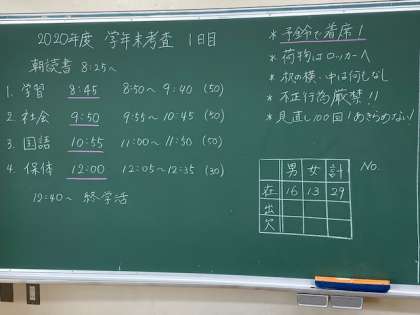 2020年度 学年末考査 1日目
朝読書 8:25~
1. 学習 8:45 8:50~9:40 (50)
2. 社会 9:50 9:55~10:45 (50)
3. 国語 10:55 11:00~11:50 (50)
4. 保体 12:00 12:05~12:35 (30)
12:40~ 終学活
* 予鈴で着席!
* 荷物はロッカーへ
* 机の横・中は何もなし
* 不正行為厳禁!!
* 見直し100回!あきらめない!
No.
男 女 計
在 16 13 29
出
欠